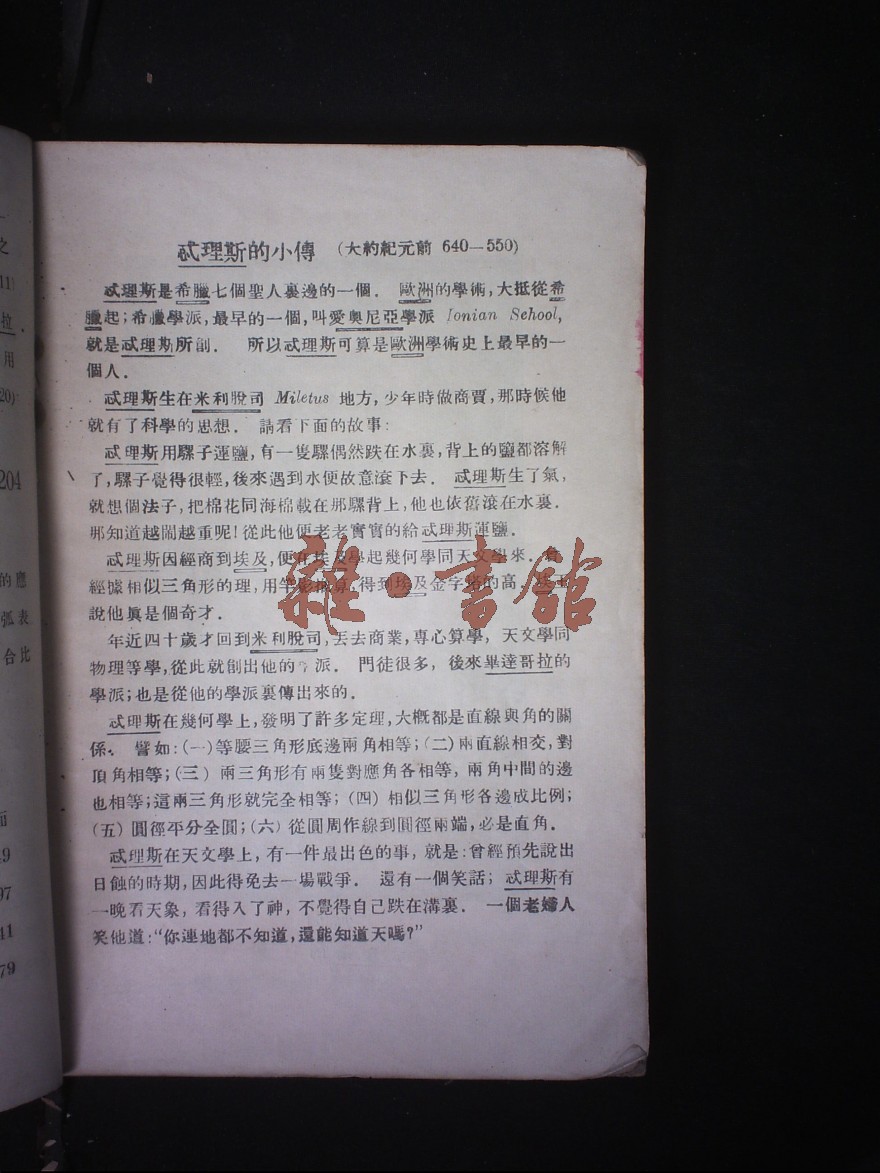 之
11)
拉.
用
20)
204
的應
弧表
台比
面
49
97
41
79
忒理斯的小傳 (大約紀元前 640—550)
忒理斯是希臘七個聖人裏邊的一個. 歐洲的學術,大抵從希
臘起;希臘學派,最早的一個,叫愛奧尼亞學派 Ionian Sehool,
就是忒理斯所創. 所以忒理斯可算是歐洲學術史上最早的一
個人.
忒理斯生在米利脫司 Miletus 地方,少年時做商賈,那時候他
就有了科學的思想. 請看下面的故事:
忒理斯用騾子運鹽,有一隻騾偶然跌在水裏,背上的鹽都溶解
了,騾子覺得很輕,後來遇到水便故意滾下去. 忒理斯生了氣,
就想個法子,把棉花同海棉載在那騾背上,他也依舊滾在水裏.
那知道越鬧越重呢!從此他便老老實實的給忒理斯運鹽.
忒理斯因經商到埃及,便在埃及學起幾何學同天文學來.
經據相似三角形的理,用竿影 算,得到埃及金字塔的高.
說他眞是個奇才.
年近四十歲才回到米利脫司,丟去商業,専心算學, 天文學同
物理等學,從此就創出他的 派. 門徒很多, 後來畢達哥拉的
學派;也是從他的學派裏傳出來的.
忒理斯在幾何學上,發明了許多定理,大概都是直線與角的關
係. 譬如:(一)等腰三角形底邊兩角相等;(二)兩直線相交,對
頂角相等;(三) 兩三角形有兩隻對應角各相等, 兩角中間的邊
也相等;這兩三角形就完全相等; (四) 相似三角形各邊成比例;
(五) 圓徑平分全圓;(六) 從圓周作線到圓徑兩端,必是直角.
忒理斯在天文學上, 有一件最出色的事, 就是:曾經預先說出
日蝕的時期,因此得免去一場戰爭. 還有一個笑話; 忒理斯有
一晚看天象, 看得入了神, 不覺得自己跌在溝裏. 一個老婦人
笑他道:“你連地都不知道,還能知道天嗎?”
雜·書館